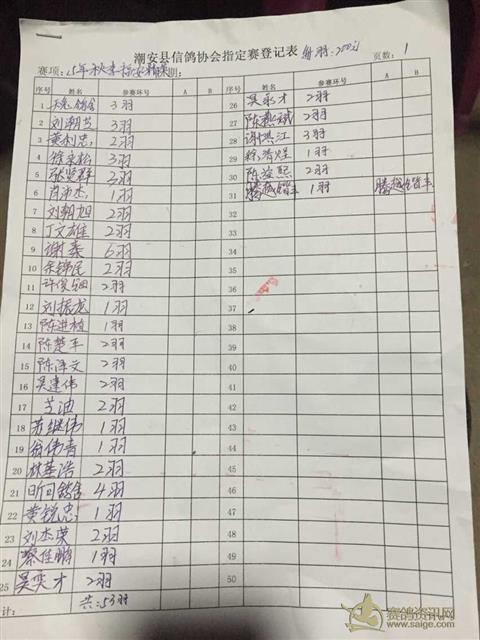 潮安县信鸽协会指定赛登记表
赛项：15年秋季 期： 页数：1
序 姓名 参赛环号 A B 序 姓名 参赛环号 A B
1 鸽舍 3羽 26 吴奕才 2羽
2 刘潮 3羽 27 陈 2羽
3 黄利忠 2羽 28 谢洪江 3羽
4 徐 3羽 29 1羽
5 张 群 3羽 30 陈 熙 2羽
6 肖 1羽 31 腾越鸽舍 1羽 腾越鸽舍
7 刘朝旭 2羽 32
8 丁文雄 2羽 33
9 谢泰 6羽 34
10 余锦民 2羽 35
11 许俊 2羽 36
12 刘振龙 1羽 37
13 陈进 1羽 38
14 陈楚平 2羽 39
15 陈泽文 2羽 40
16 吴建伟 2羽 41
17 2羽 42
18 苏继伟 1羽 43
19 翁伟青 1羽 44
20 林基浩 2羽 45
21 昕回鸽舍 4羽 46
22 黄锐忠 1羽 47
23 刘杰荣 2羽 48
24 蔡佳鹏 1羽 49
25 吴奕才 2羽 50
计： 共：53羽
赛鸽资讯网
www.saige.com